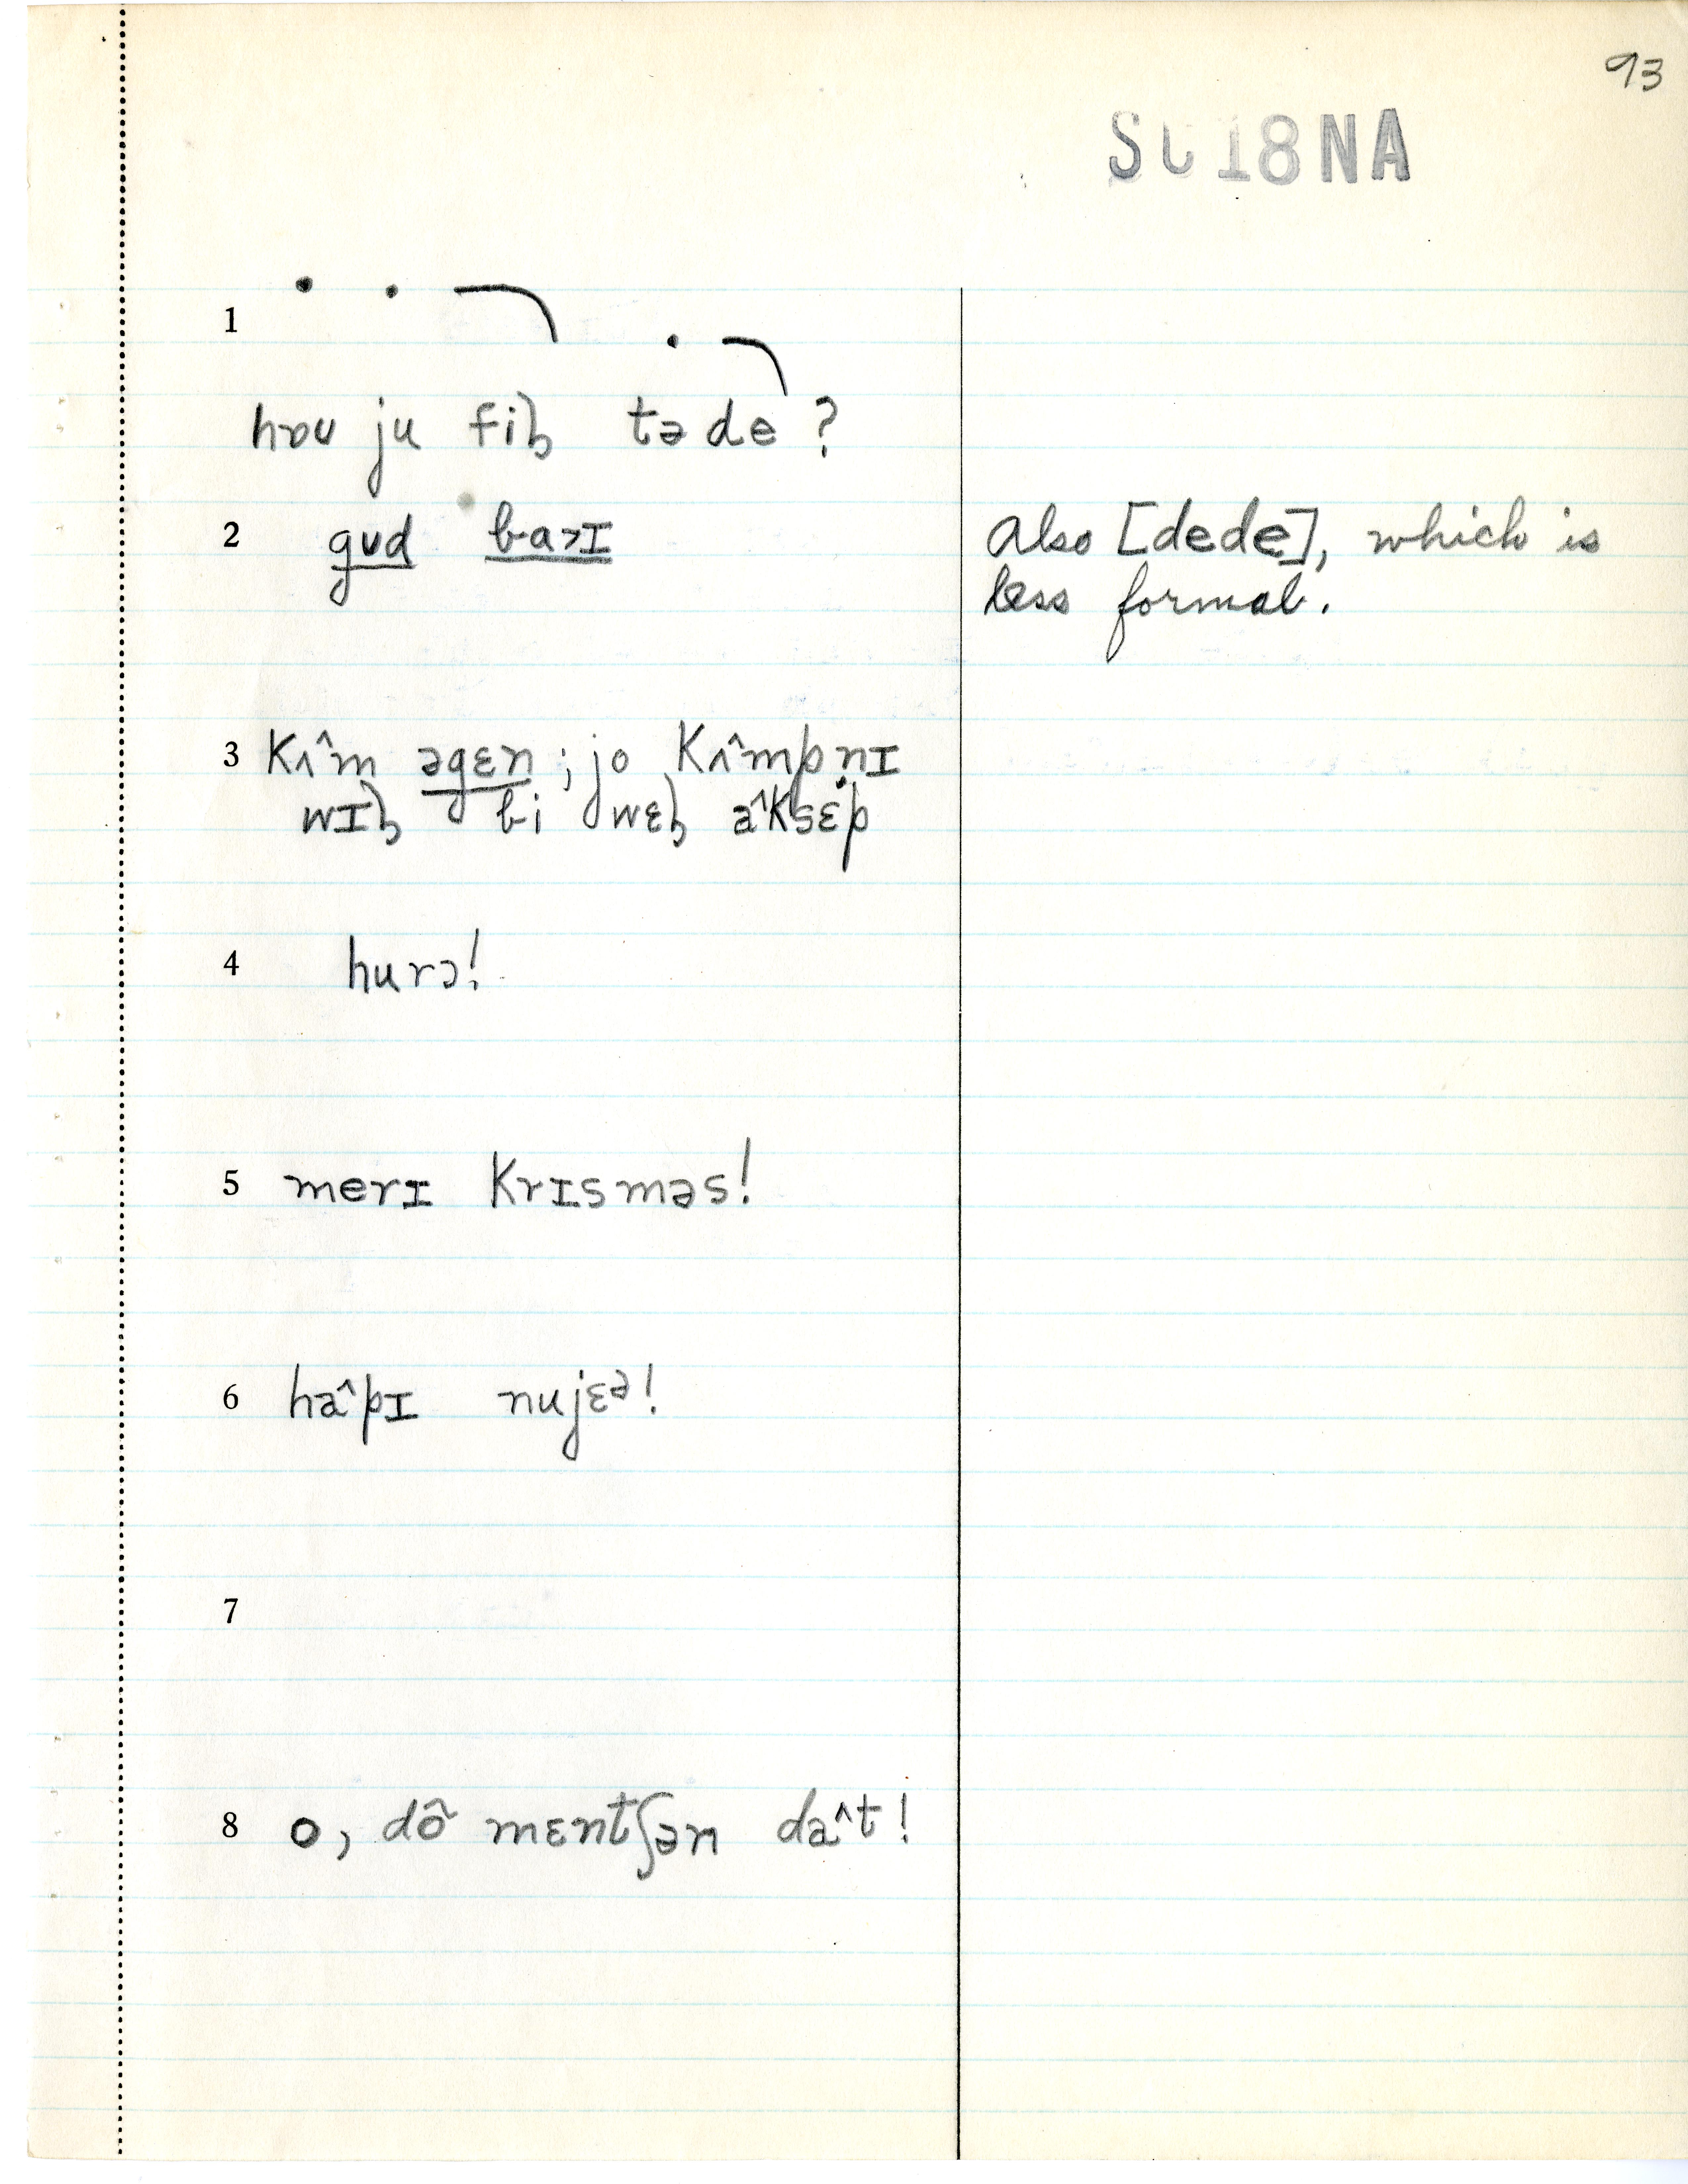 93
SC18NA
1
hɒu ju fiɫ təde ?
2 gʊd ba>ɪ
also [dede], which is
less formal.
3 kʌ^m əgɛn ; jo kʌ^mpn̩ɪ
wɪɫ bi wɛɫ a^ksɛp
4 hurɔ!
5 merɪ krɪsməs!
6 ha^pɪ nujɛə!
7
8 o, dõ^ mɛntʃən da^t!